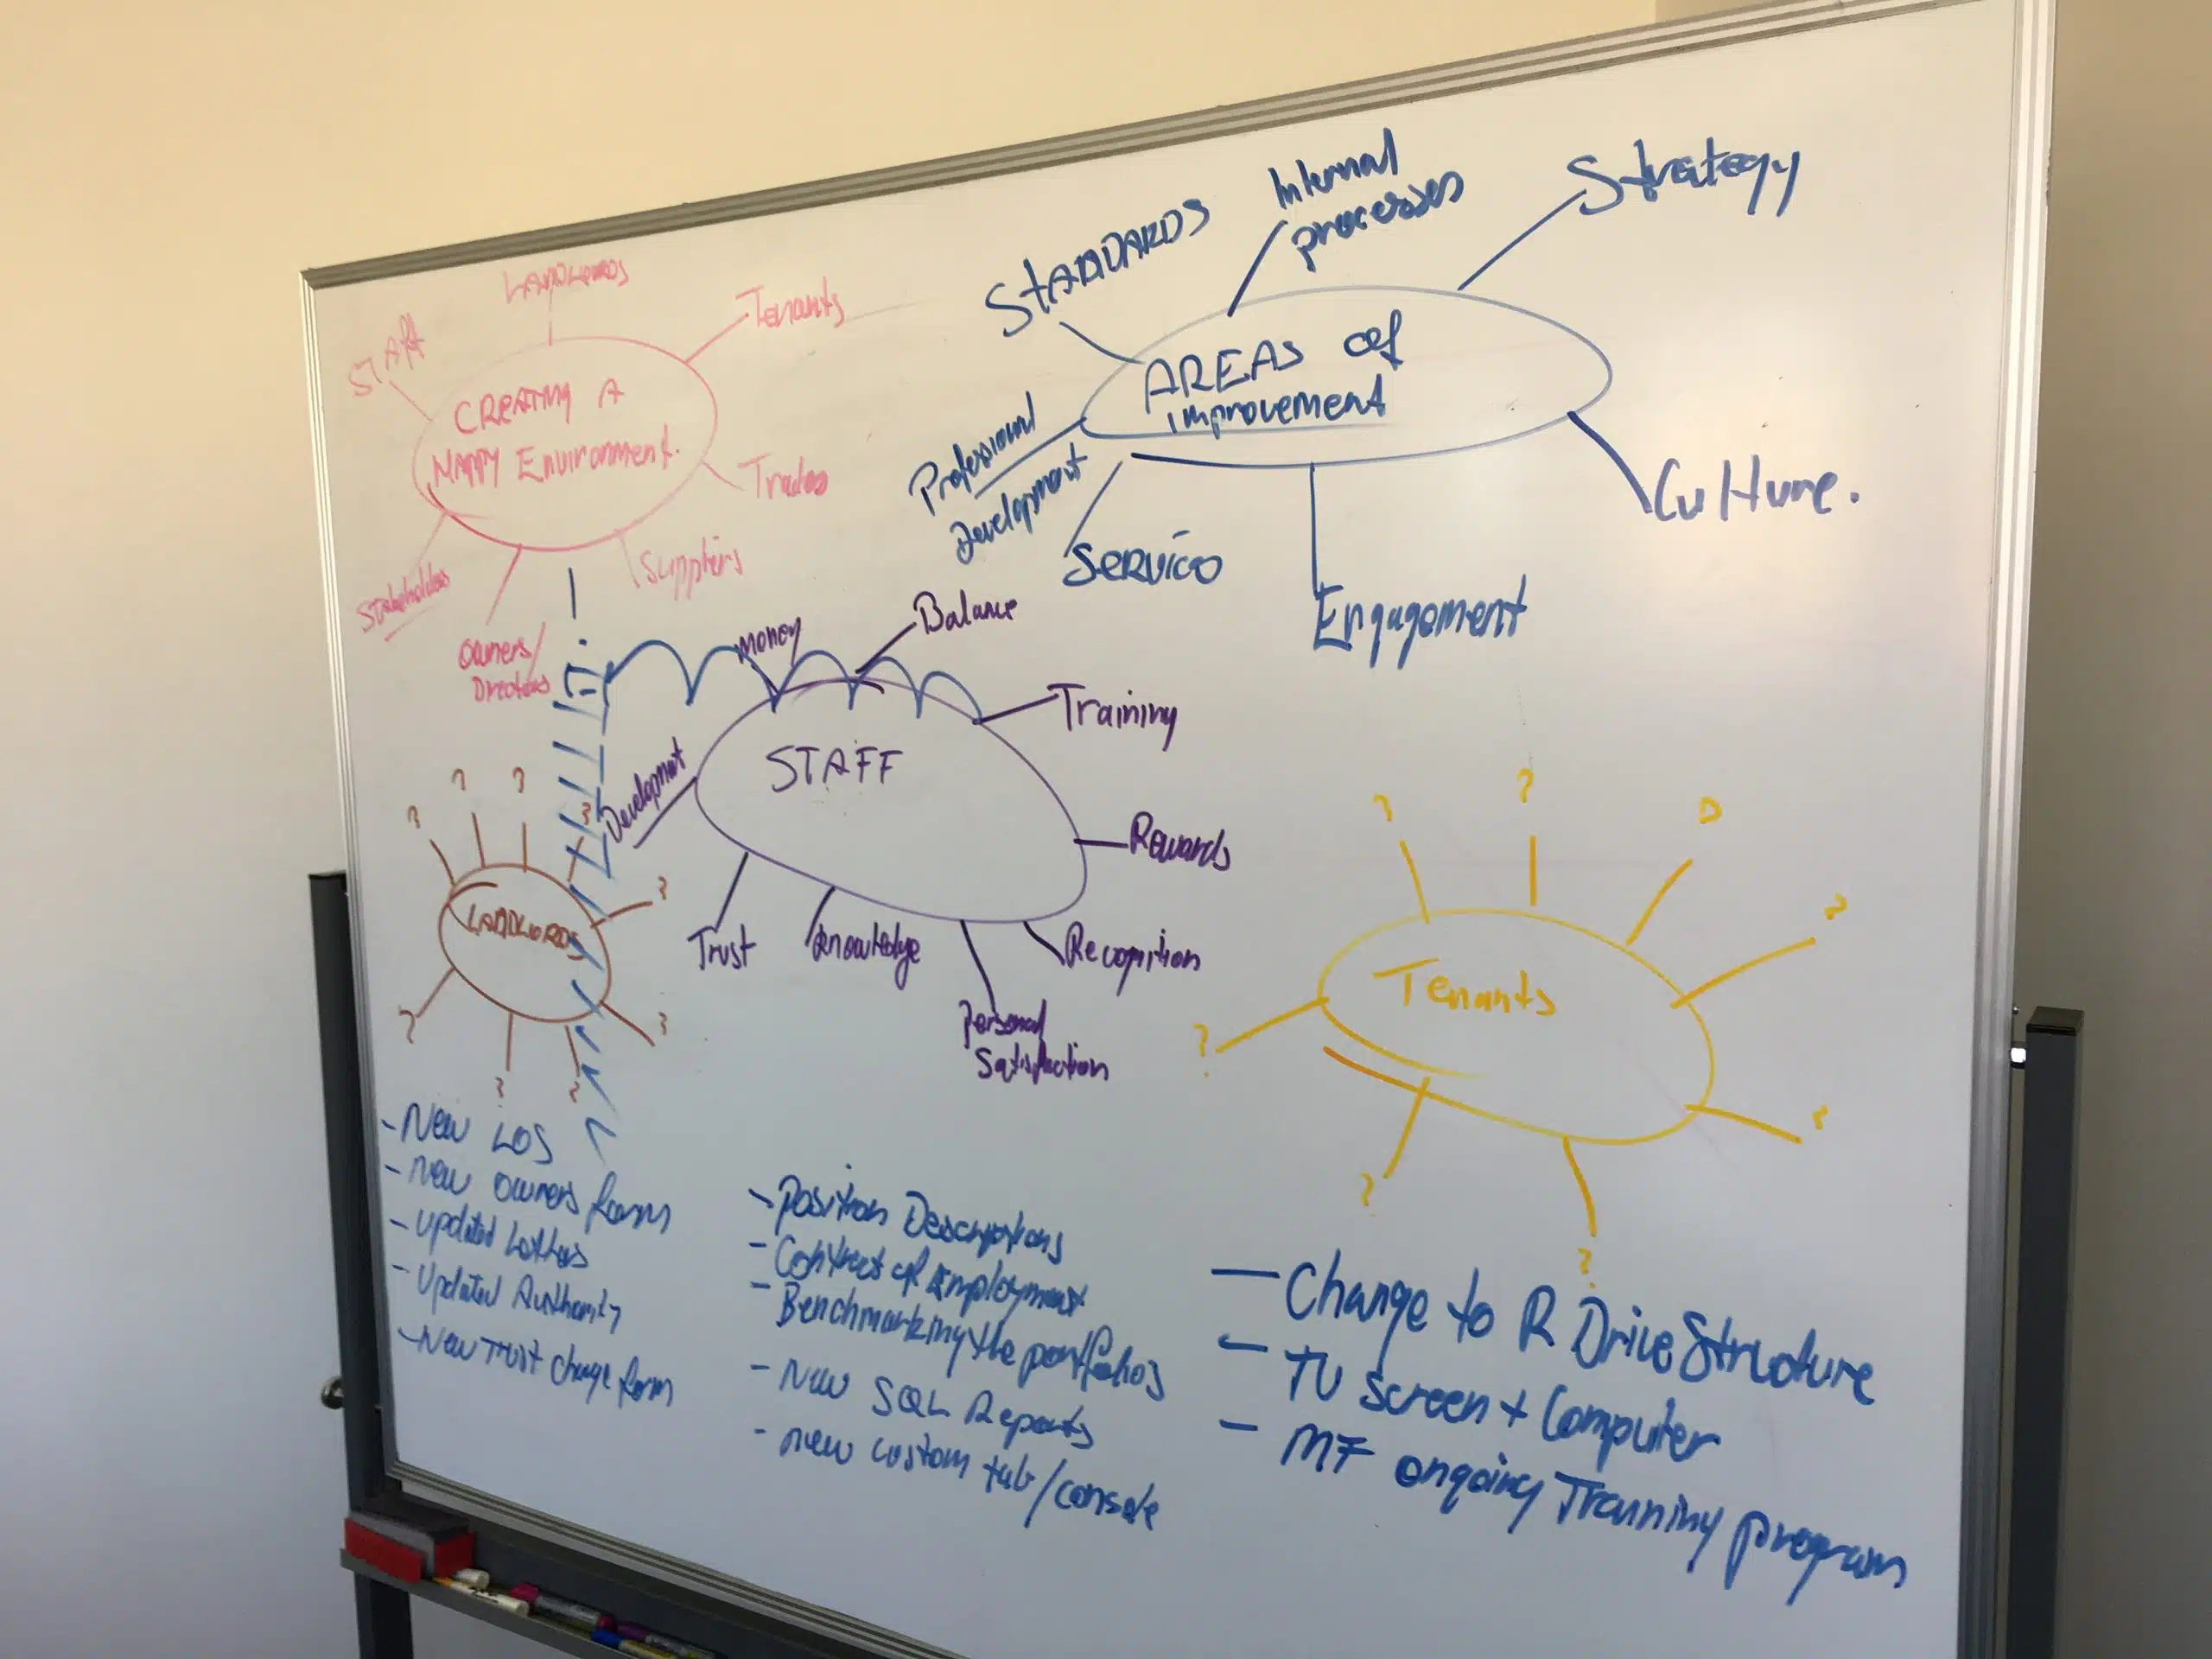 LANDLORDS
STAFF
Tenants
CREATING A
HAPPY Environment.
Trades
Suppliers
Stakeholders
Owners/
Directors
STANDARDS
Internal
processes
Strategy
AREAS of
improvement
Professional
Development
Service
Engagement
Culture.
Money
Balance
Training
STAFF
Development
Rewards
Trust
Knowledge
Recognition
Personal
Satisfaction
? ? ? ?
?
LANDLORDS
? ?
? ?
? ? ?
?
Tenants
? ?
? ?
- New LOS
- New owners form
- Updated Letters
- Updated Authority
- New Trust change form
- Position Descriptions
- Contract of Employment
- Benchmarking the portfolios
- New SQL Reports
- New custom tab/console
- Change to R Drive Structure
- TV screen + Computer
- MF ongoing Training program